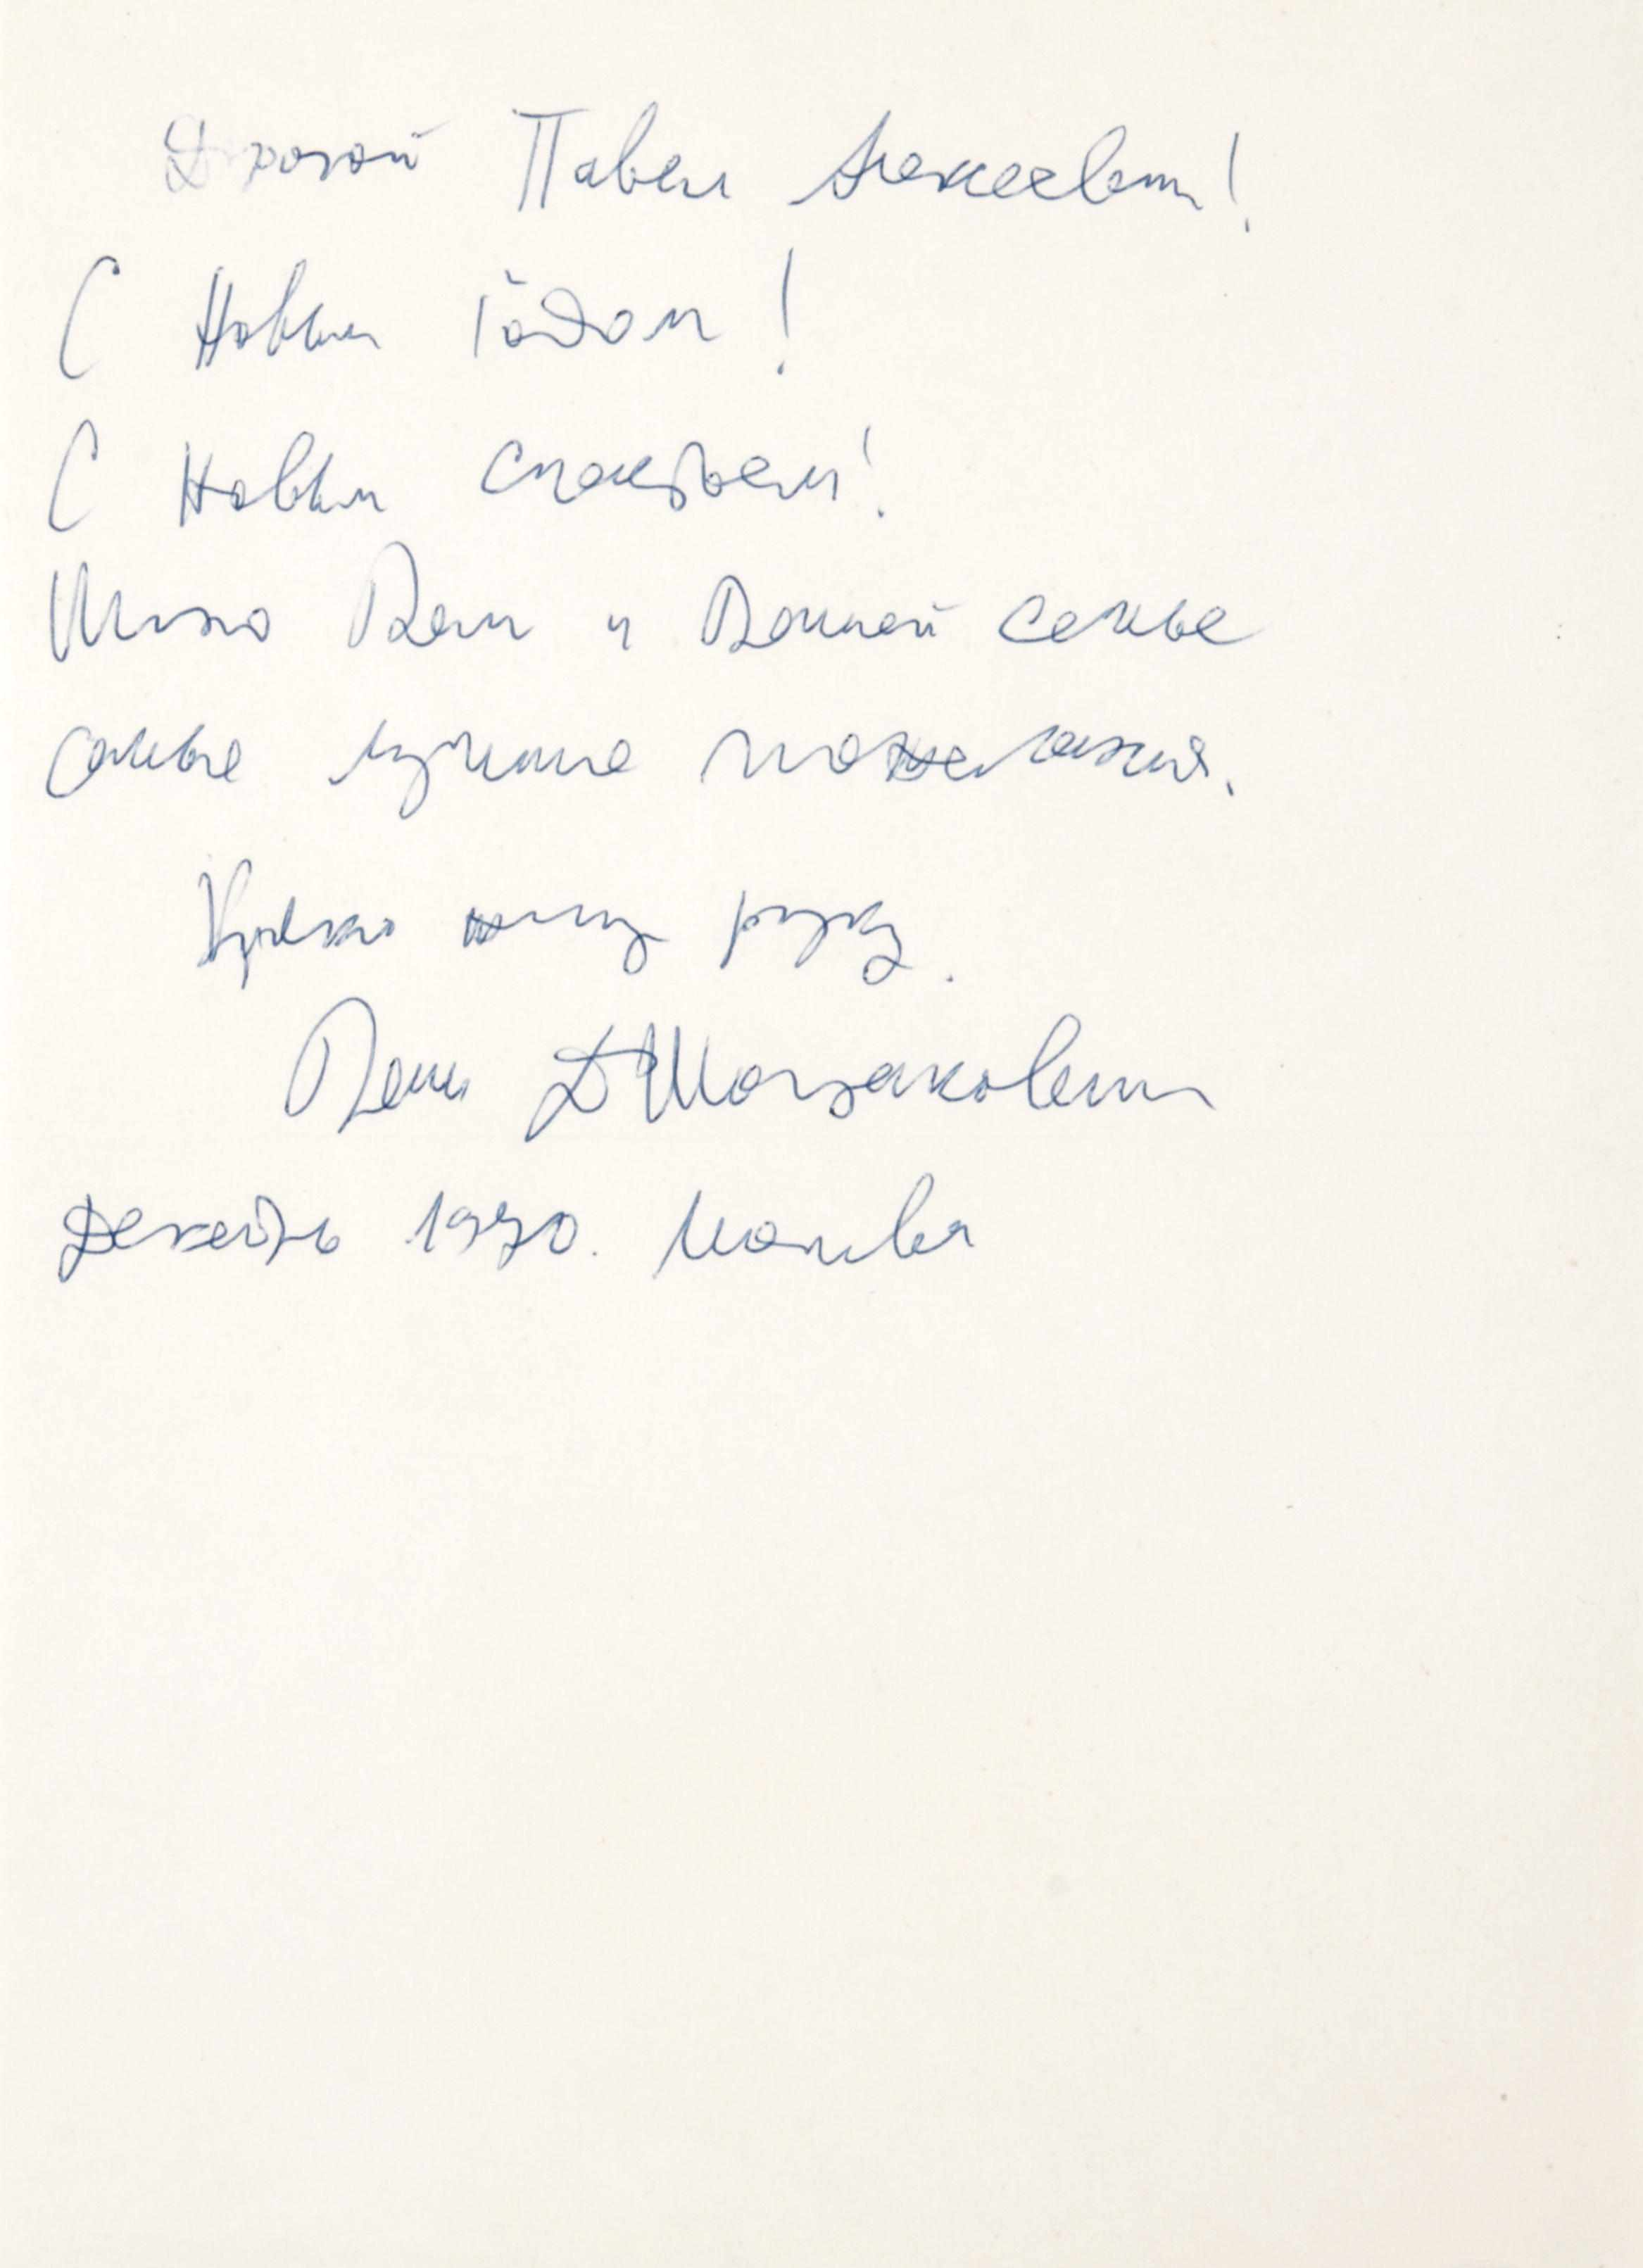 Дорогой Павел Алексеевич!
С Новым Годом!
С Новым счастьем!
Шлю Вам и Вашей семье
самые лучшие пожелания.
Крепко жму руку.
Ваш Д Шостакович
Декабрь 1970. Москва